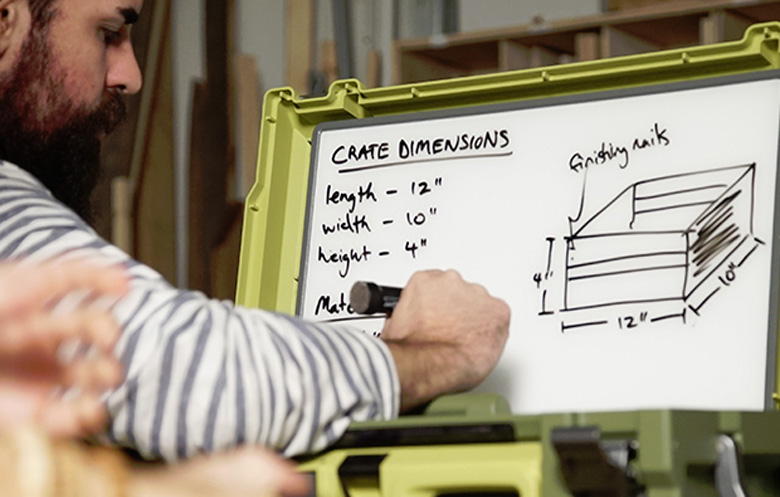 CRATE DIMENSIONS
length - 12"
width - 10"
height - 4"
finishing nails
4"
12"
10"